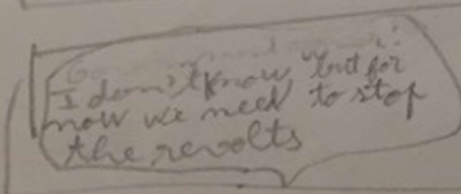 I don't know but for
now we need to stop
the revolts